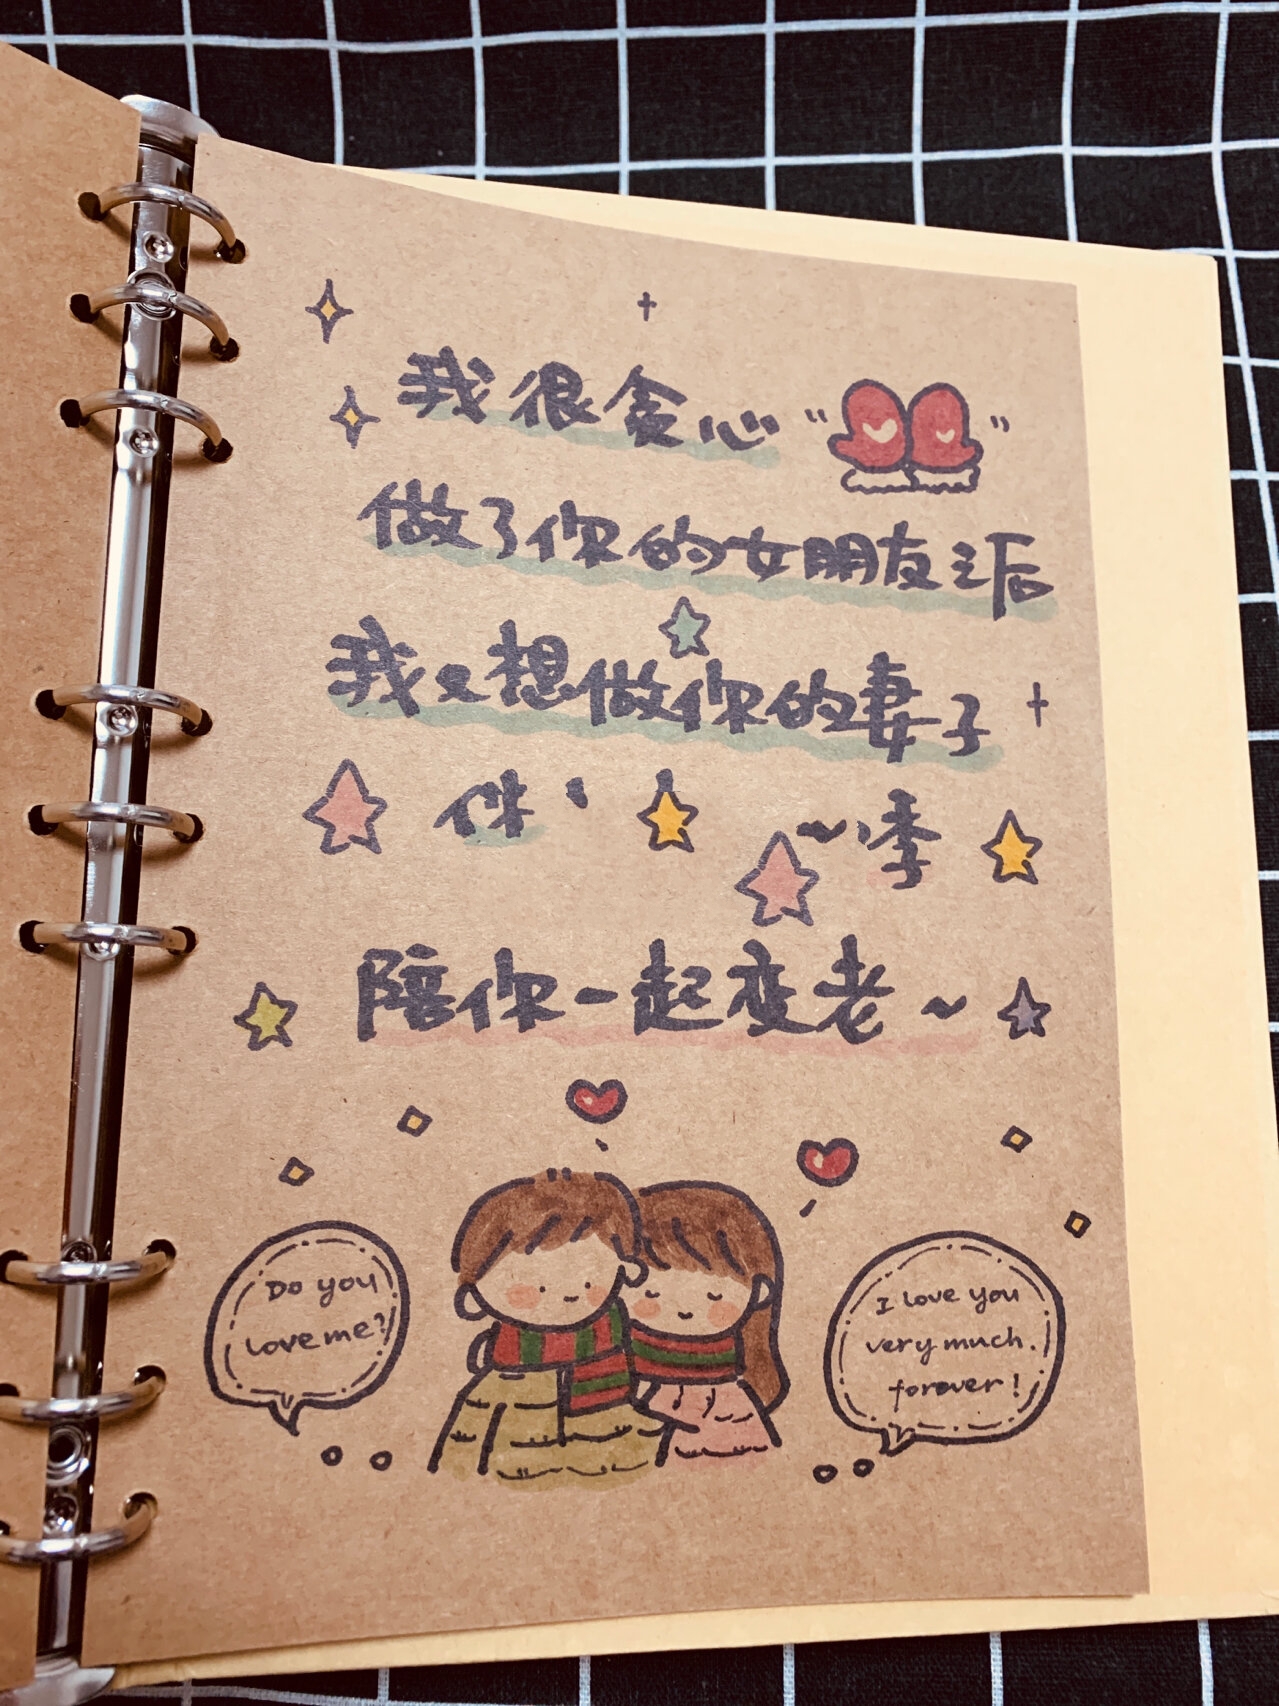 我很贪心
做了你的女朋友之后
我又想做你的妻子
伴、 ~、季
陪你一起变老~
Do you
love me?
I love you
very much.
forever!